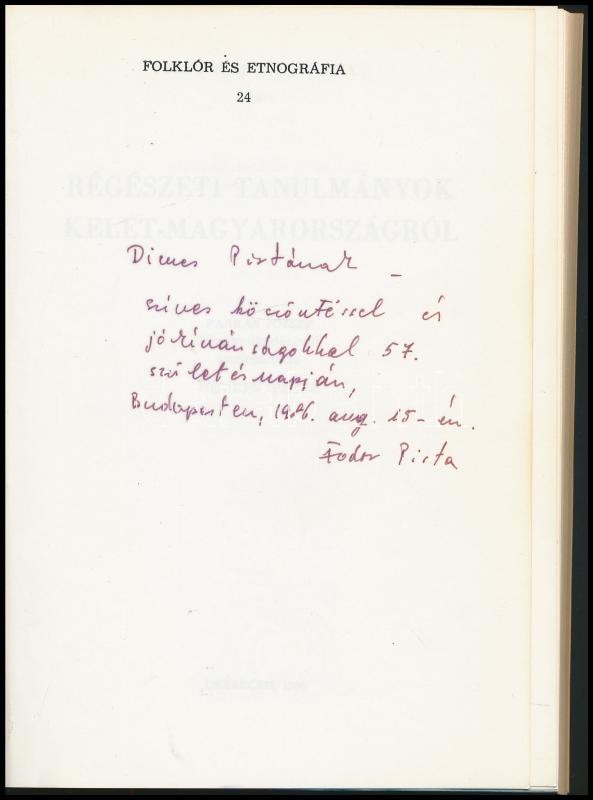 FOLKLÓR ÉS ETNOGRÁFIA
24
RÉGÉSZETI TANULMÁNYOK
KELET-MAGYARORSZÁGRÓL
Dienes Pistának –
szíves köszöntéssel és
jókívánságokkal 57.
születésnapján,
Budapesten, 1986. aug. 15-én.
Fodor Pista